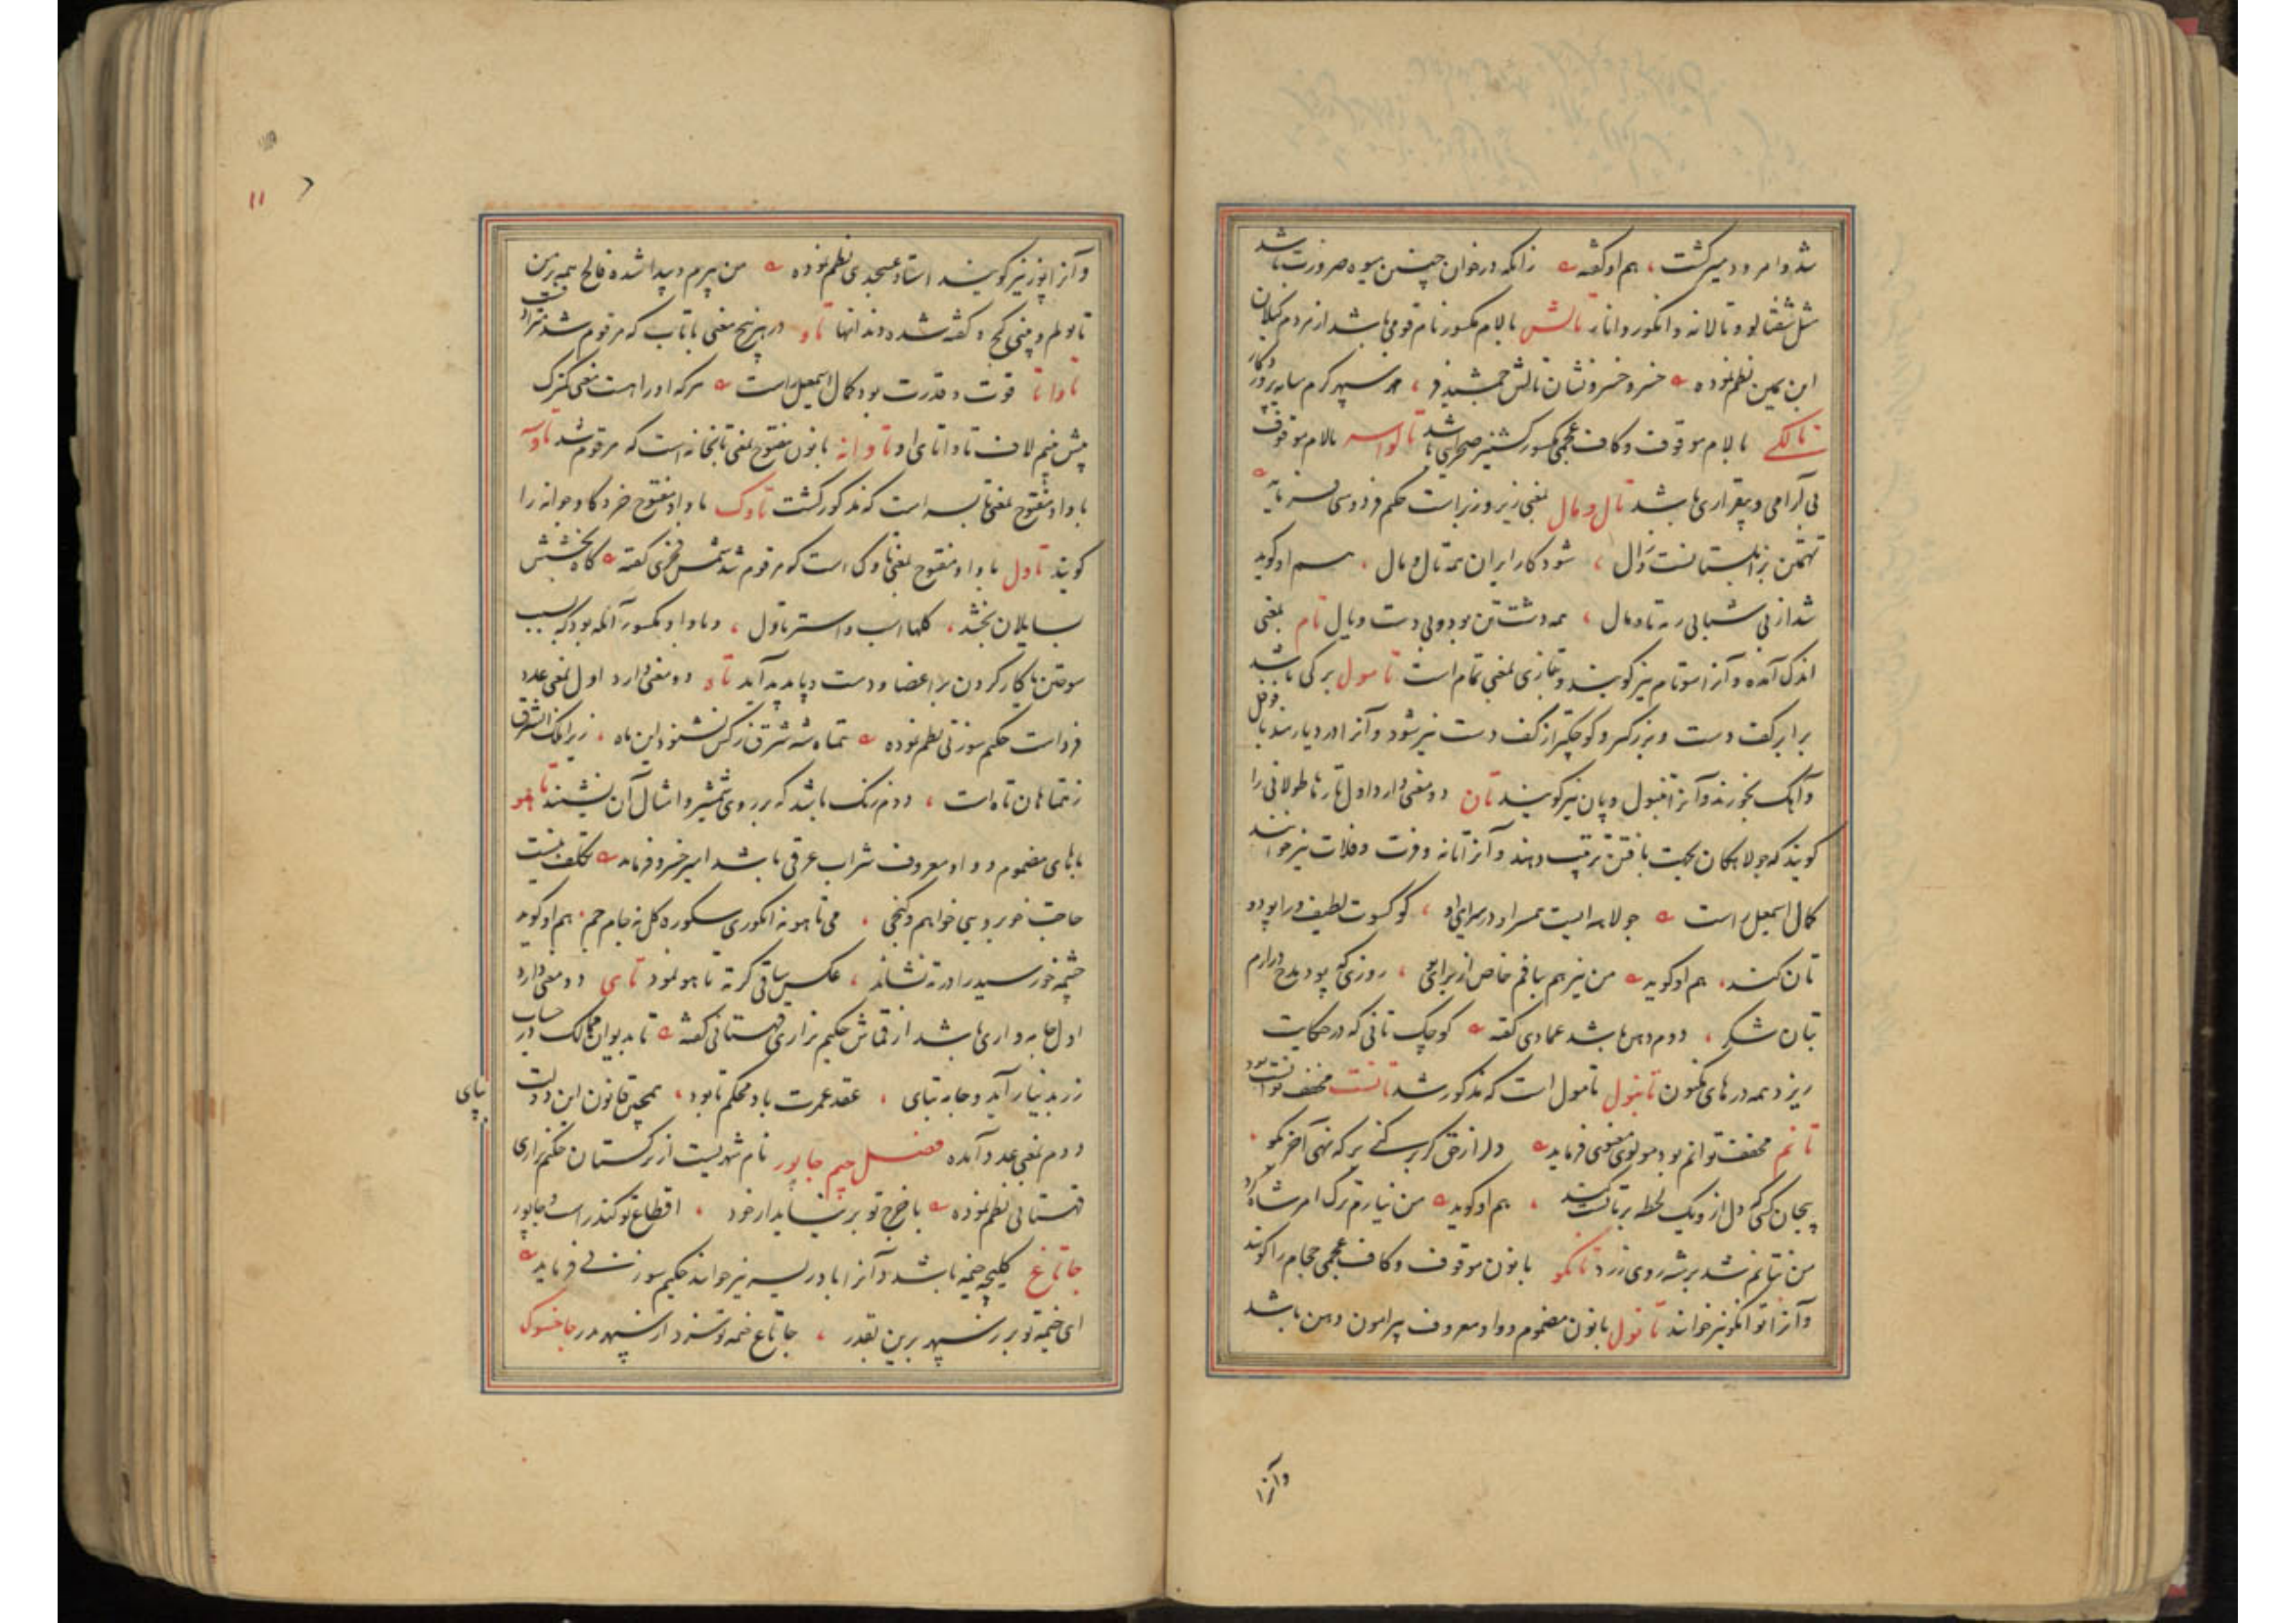 شد و امرود میر گشت، هم او گفته زانکه در خوان چنین میوه ضرورت باشد
مثل شفتالو و تالانه و انکور و انار تالش بالام مکسور نام قومی باشد از مردم کیلان
ابن یمین نظم نموده خسرو خسرو نشان تالش جمشید فر،
تالکی بالام موقوف و کاف عجمی مکسور کشنیز صحرایی باشد تالواسه بالام موقوف
بی آرامی و بیقراری باشد تال و مال بمعنی زیر و زبر است حکیم فردوسی فرماید
تهمتن بزابلستانست و زال، شود کار ایران همه تال و مال، هم او کوید
شد از بی شبانی رمه تال و مال، همه دشت تن بود و بی دست و یال تام بمعنی
اندک آمده و آنرا توتام نیز کویند و بتازی بمعنی تمام است تامول برکی باشد
برابر کف دست و بزرکتر و کوچکتر از کف دست نیز شود و آنرا در دیار هند با فوفل
و آهک بخورند و آنرا تنبول و پان نیز کویند تان دو معنی دارد اول تارها طولانی را
کویند که جولاهکان بجهت بافتن ترتیب دهند و آنرا تانه و فرت و فلات نیز خوانند
کمال اسمعیل راست جولاهه ایست همسر او در سرای او، کو کسوت لطیف ورا پود و
تان کند، هم او کوید من نیز هم ببافم خاص از برای تو، روزی که پود مدح درارم
بتان شکر، دوم دهن باشد عمادی گفته کوچک تانی که در حکایت
ریزد همه درهای مکنون تانبول تامول است که مذکور شد تانست مخفف توانست بود
تانم مخفف توانم بود مولوی معنوی فرماید دل از حق کر کنی بر که نهی آخر بکو
بیجان کسی که دل از و یک لحظه بر تانست کند، هم او کوید من نیارم ترک امر شاه کرد
من نتانم شد بر شه روی زرد تانکو بانون موقوف و کاف عجمی حجام را کویند
و آنرا توانکو نیز خوانند تانول بانون مضموم و واو معروف پیرامون دهن باشد
و آنرا
و آنرا پوز نیز کویند استاد عسجدی نظم نموده من پیرم و پیدا شده فالج همه بر من
تانولم و بینی کج و کفته شده دندانها تاو در هر پنج معنی با تاب که مرقوم شد مترادفست
تاوانا قوت و قدرت بود کمال اسمعیل راست هر که او را هست معنی کنزک
پیش منم لاف تاوانای او تاوانه بانون مفتوح بمعنی تابخانه است که مرقوم شد تاوسه
با واو مفتوح بمعنی تابسه است که مذکور کشت تاوک با واو مفتوح خر و کاو جوانه را
کویند تاول با واو مفتوح بمعنی تاوک است که مرقوم شد شمس فخری گفته کاه بخشش
بسایلان بخشد، کلها اسب و استر تاول، و با واو مکسور آنکه بود که بسبب
سوختن یا کار کردن بر اعضا و دست و پا پدید آید تاه دو معنی دارد اول بمعنی عدد
فرد است حکیم سوزنی نظم نموده تمتاه شه شرق ز کس نشنود این ماه، زیرا ملک الشرق
ز تمتاهان تاه است، دوم زنک باشد که بر روی شمشیر و امثال آن نشیند تاهو
باهای مضموم و واو معروف شراب عرقی باشد امیر خسرو فرماید تکلف نیست
حاجت خوبرویی خواهم و کنجی، می تاهو نه انکوری سکوره کل نه جام جم، هم او کوید
چشمه خورشید را در ته نشاند، عکس ساقی کر ته تاهو نمود تای دو معنی دارد
اول جامه واری باشد از قماش حکیم نزاری قهستانی گفته تا بدیوان ممالک در حساب
زر بدینار آید و جامه بتای، عقد عمرت باد محکم تا بود، همچنین قانون این دولت
بپای
دوم بمعنی عدد آمده فصل جیم جابور نام شهریست از ترکستان حکیم نزاری
قهستانی نظم نموده با خرج تو بر نیاید ار خود، اقطاع تو کندر است و جابور
جاتاغ کلیچه خیمه باشد و آنرا بادریسه نیز خوانند حکیم سوزنی فرماید
ای خیمه تو برز سپهر برین بقدر، جاتاغ خیمه تو سزد از سپهر مدر جاخسوک
۱۱